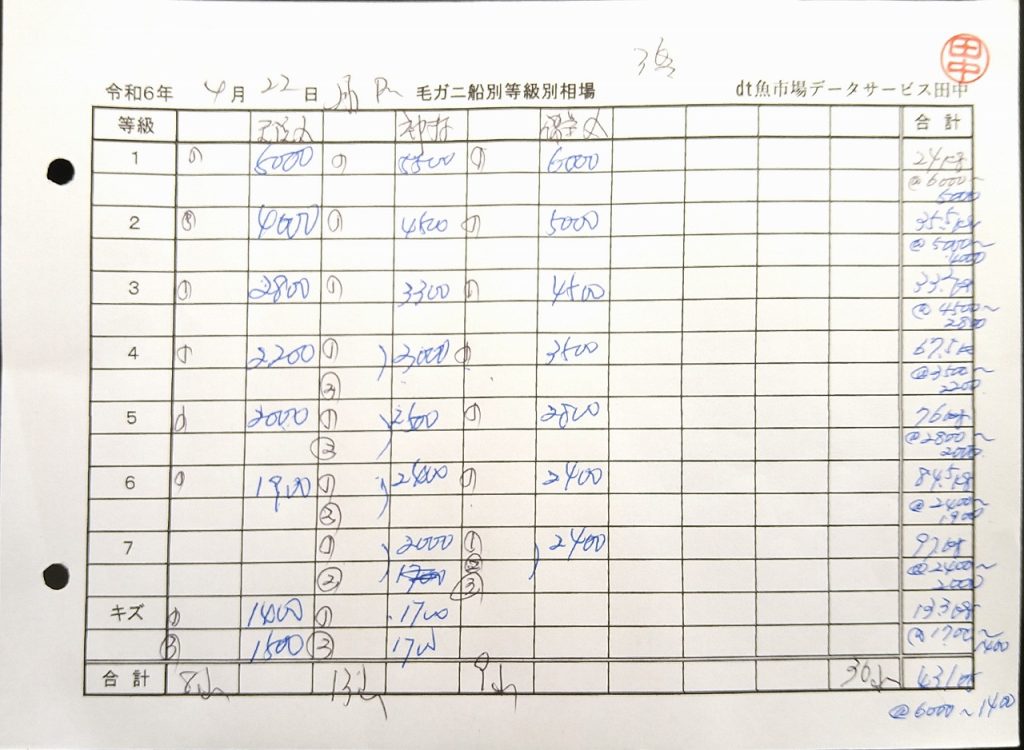 令和6年 4月22日 毛ガニ船別等級別相場 dt魚市場データサービス田中
田中
等級 合計
1 ① 5000 ① 5500 ① 6000 24kg
@6000~
5000
2 ③ 4000 ① 4500 ① 5000 35.5kg
@5000~
4000
3 ① 2800 ① 3300 ① 4500
@4500~
2800
4 ① 2200 ① 3000 ① 3500 67.5kg
③ @3500~
2200
5 ① 2000 ① 2500 ① 2800 76kg
③ @2800~
2000
6 ① 1900 ① 2400 ① 2400 84.5kg
③ @2400~
1900
7 ① 2000 ① 2400 97kg
② ② @2400~
③ 2000
キズ ① 1400 ① 1700 13.3kg
③ 1500 ③ 1700 @1700~
1400
合計 8山 13山 9山 30山 431kg
@6000~1400